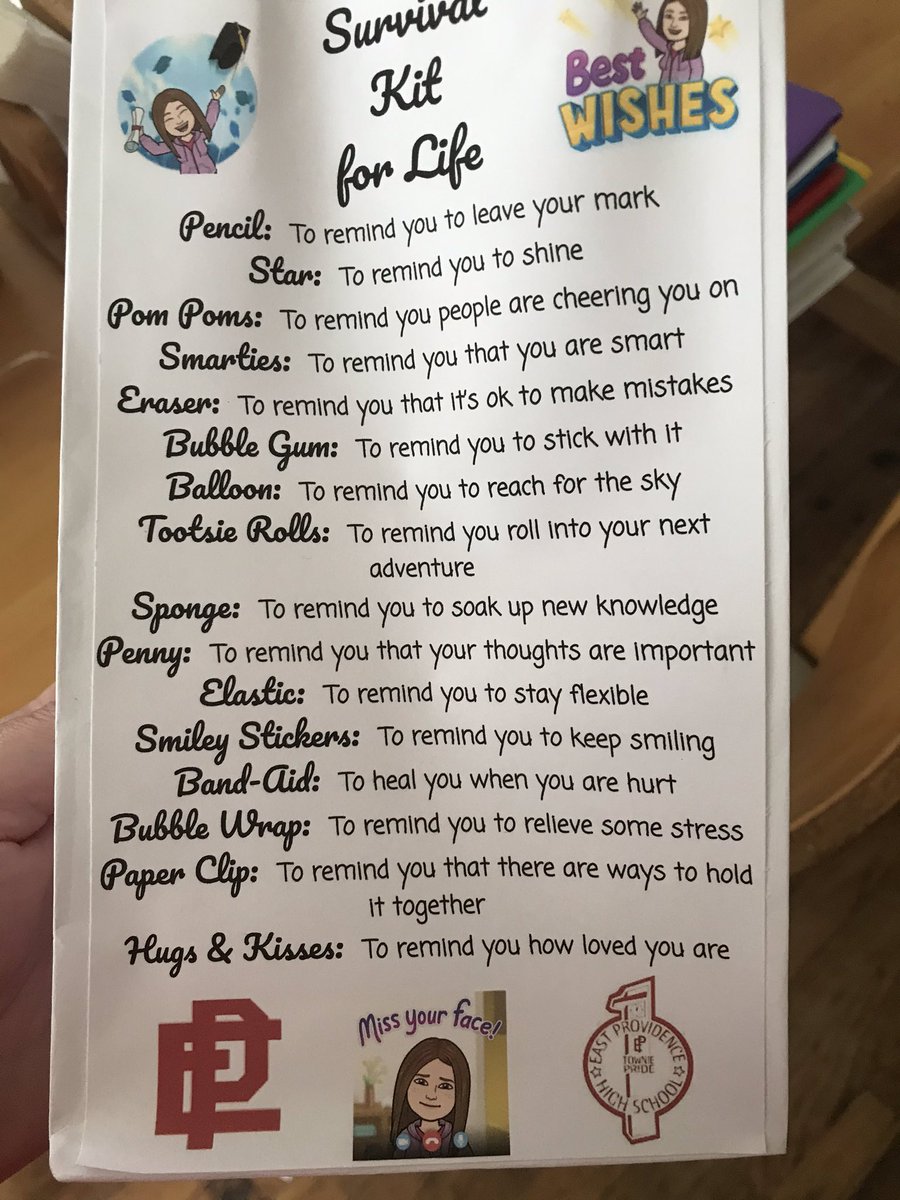 Survival
Kit
for Life
Best
WISHES
Pencil: To remind you to leave your mark
Star: To remind you to shine
Pom Poms: To remind you people are cheering you on
Smarties: To remind you that you are smart
Eraser: To remind you that it's ok to make mistakes
Bubble Gum: To remind you to stick with it
Balloon: To remind you to reach for the sky
Tootsie Rolls: To remind you roll into your next
adventure
Sponge: To remind you to soak up new knowledge
Penny: To remind you that your thoughts are important
Elastic: To remind you to stay flexible
Smiley Stickers: To remind you to keep smiling
Band-Aid: To heal you when you are hurt
Bubble Wrap: To remind you to relieve some stress
Paper Clip: To remind you that there are ways to hold
it together
Hugs & Kisses: To remind you how loved you are
EP
Miss your face!
1
EAST PROVIDENCE
EP
TOWNIE
PRIDE
HIGH SCHOOL